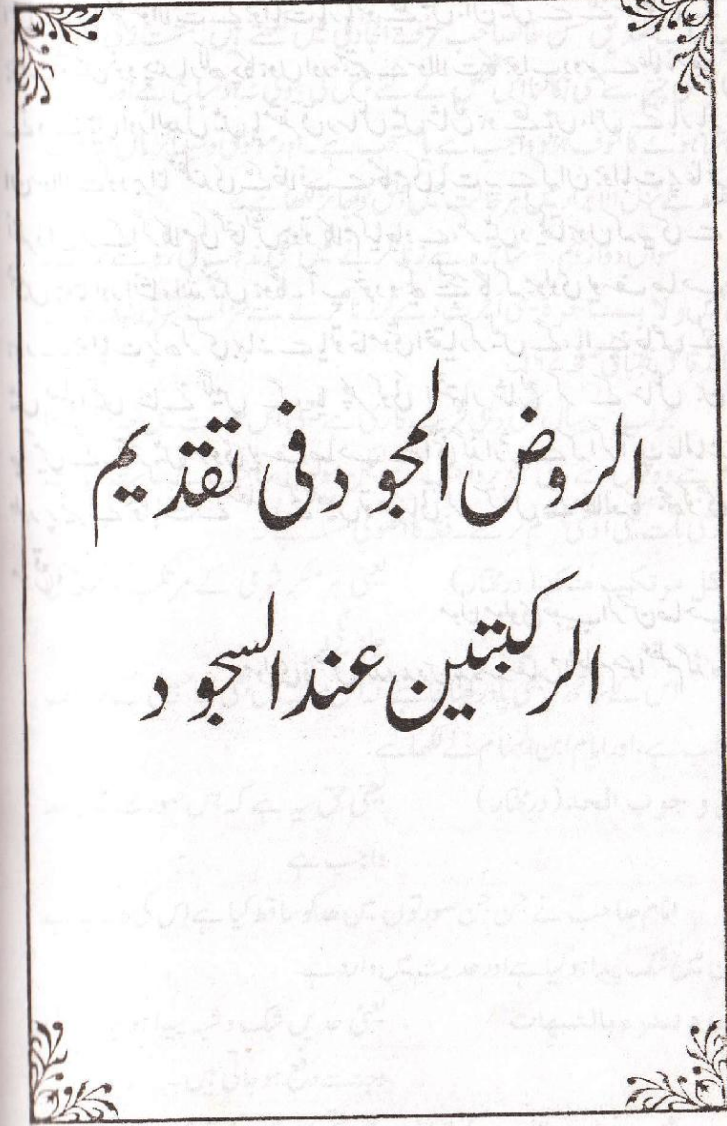 الروض المجود فی تقدیم
الرکبتین عند السجود